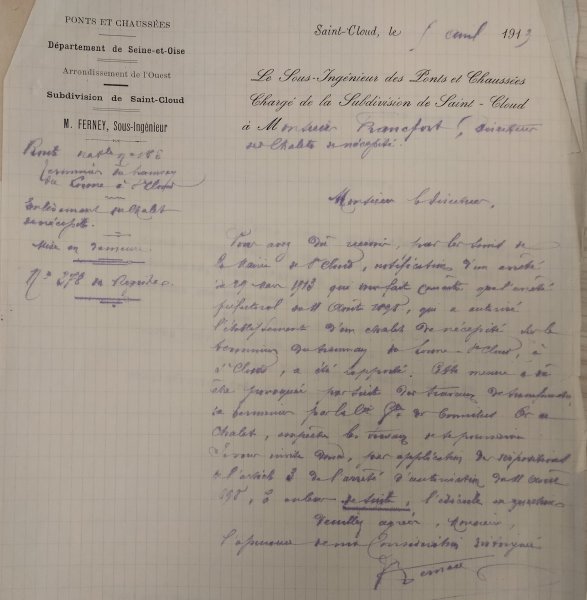 PONTS ET CHAUSSÉES
Département de Seine-et-Oise
Arrondissement de l'Ouest
Subdivision de Saint-Cloud
M. FERNEY, Sous-Ingénieur
Route natle n° 186
Terminus du tramway
du Louvre à St Cloud
Enlèvement du chalet
de nécessité
Mise en demeure
N° 278 du Registre
Saint-Cloud, le 5 avril 1913
Le Sous-Ingénieur des Ponts et Chaussées
Chargé de la Subdivision de Saint-Cloud
à Monsieur Francfort, directeur
des Chalets de nécessité.
Monsieur le directeur,
Vous avez dû recevoir, par les soins de
la Mairie de St Cloud, notification d'un arrêté
du 29 Mars 1913 qui vous fait connaître que l'arrêté
préfectoral du 11 Août 1898, qui a autorisé
l'établissement d'un chalet de nécessité sur le
terminus du tramway du Louvre - St Cloud, à
St Cloud, a été rapporté. Cette mesure a
été provoquée par suite des travaux de
terminus par la Cie Gle des Omnibus. Or ce
chalet, empêche les travaux de se poursuivre
Je vous invite donc, par application des dispositions
de l'article 3 de l'arrêté d'autorisation du 11 août
1898, à enlever de suite, l'édicule en question
Veuillez agréer, Monsieur,
l'assurance de ma Considération distinguée